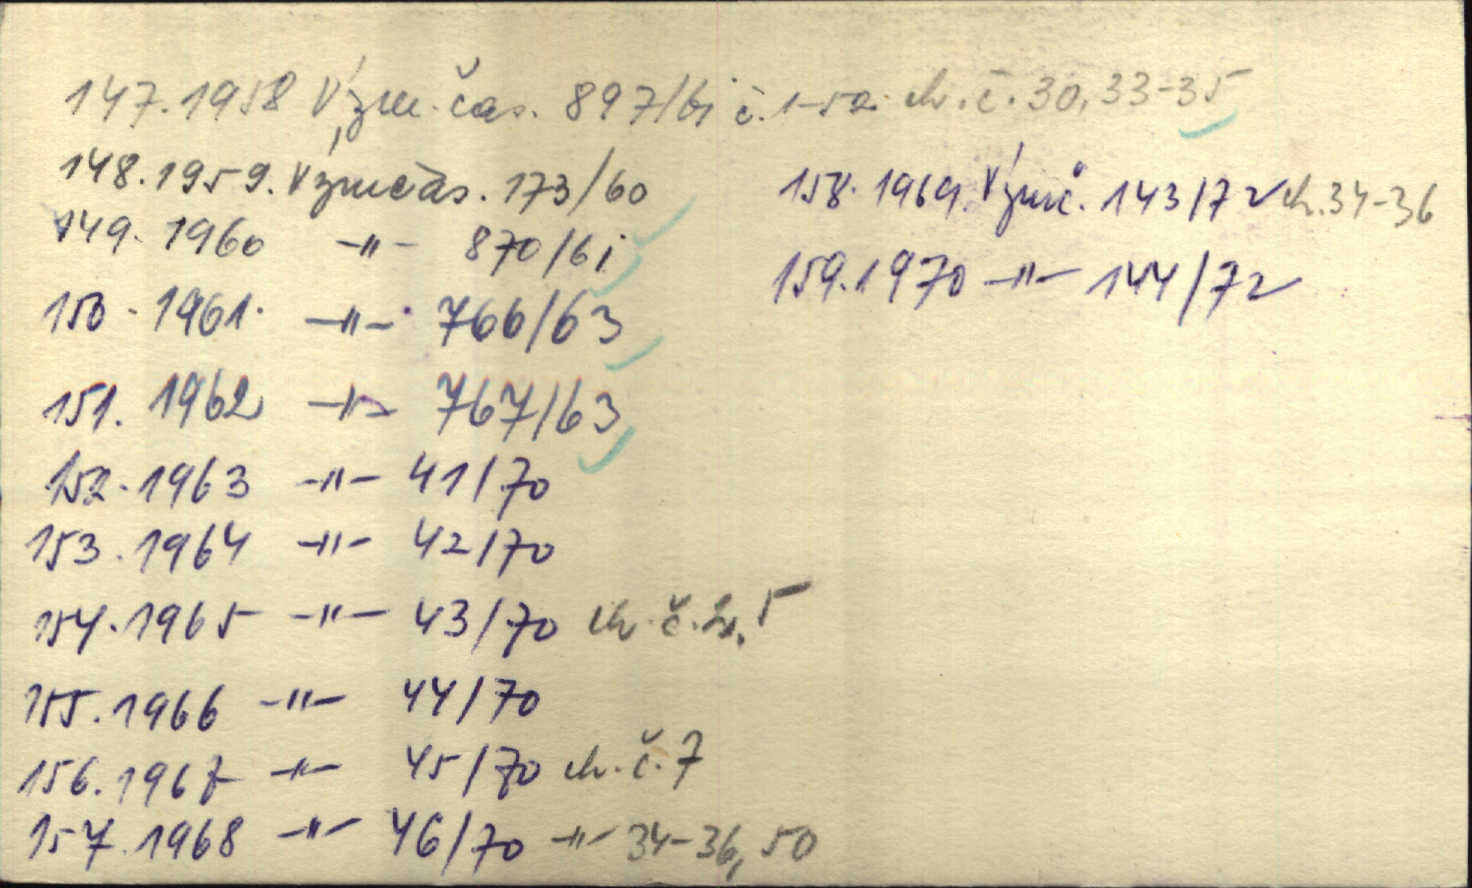 147.1958 Výzm. čas. 897/61 č. 1-52. ch. č. 30, 33-35
148.1959. Výzm čas. 173/60
149. 1960 -"- 870/61
150. 1961. -"- 766/63
151. 1962 -"- 767/63
152. 1963 -"- 41/70
153. 1964 -"- 42/70
154. 1965 -"- 43/70 ch. č. 2, 5
155. 1966 -"- 44/70
156. 1967 -"- 45/70 ch. č. 7
157. 1968 -"- 46/70 -"- 34-36, 50
158. 1969. Výzm č. 143/72 ch. 34-36
159. 1970 -"- 144/72